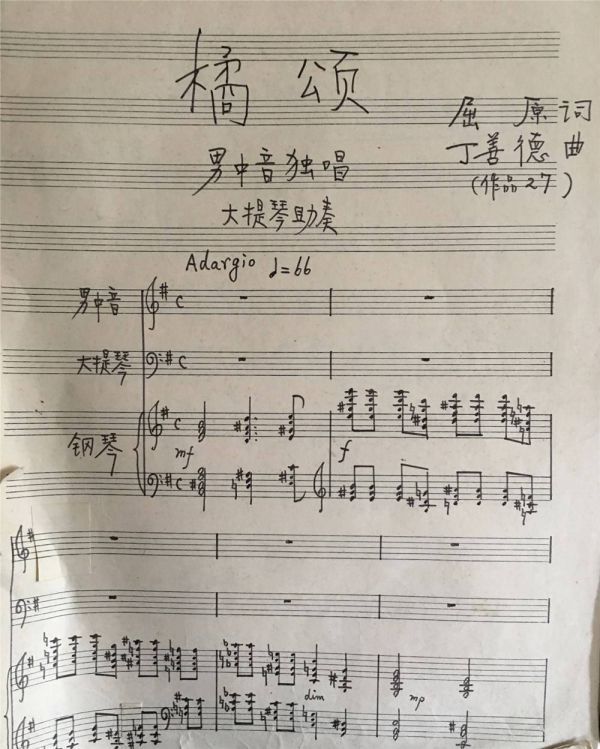 橘颂
屈原词
丁善德曲
(作品27)
男中音独唱
大提琴助奏
Adargio ♩=66
男中音
大提琴
钢琴
mf
f
dim
mp